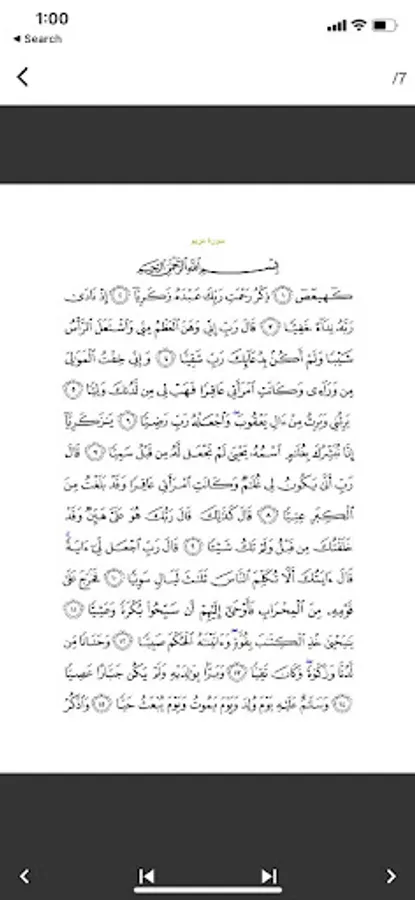 1:00
Search
/7
سورة مريم
بِسْمِ ٱللَّهِ ٱلرَّحْمَٰنِ ٱلرَّحِيمِ
كٓهيعٓصٓ ١ ذِكْرُ رَحْمَتِ رَبِّكَ عَبْدَهُۥ زَكَرِيَّآ ٢ إِذْ نَادَىٰ
رَبَّهُۥ نِدَآءً خَفِيًّا ٣ قَالَ رَبِّ إِنِّى وَهَنَ ٱلْعَظْمُ مِنِّى وَٱشْتَعَلَ ٱلرَّأْسُ
شَيْبًا وَلَمْ أَكُنۢ بِدُعَآئِكَ رَبِّ شَقِيًّا ٤ وَإِنِّى خِفْتُ ٱلْمَوَٰلِىَ
مِن وَرَآءِى وَكَانَتِ ٱمْرَأَتِى عَاقِرًا فَهَبْ لِى مِن لَّدُنكَ وَلِيًّا ٥
يَرِثُنِى وَيَرِثُ مِنْ ءَالِ يَعْقُوبَ ۖ وَٱجْعَلْهُ رَبِّ رَضِيًّا ٦ يَٰزَكَرِيَّآ
إِنَّا نُبَشِّرُكَ بِغُلَٰمٍ ٱسْمُهُۥ يَحْيَىٰ لَمْ نَجْعَل لَّهُۥ مِن قَبْلُ سَمِيًّا ٧ قَالَ
رَبِّ أَنَّىٰ يَكُونُ لِى غُلَٰمٌ وَكَانَتِ ٱمْرَأَتِى عَاقِرًا وَقَدْ بَلَغْتُ مِنَ
ٱلْكِبَرِ عِتِيًّا ٨ قَالَ كَذَٰلِكَ قَالَ رَبُّكَ هُوَ عَلَىَّ هَيِّنٌ وَقَدْ
خَلَقْتُكَ مِن قَبْلُ وَلَمْ تَكُ شَيْـًٔا ٩ قَالَ رَبِّ ٱجْعَل لِّىٓ ءَايَةً ۚ
قَالَ ءَايَتُكَ أَلَّا تُكَلِّمَ ٱلنَّاسَ ثَلَٰثَ لَيَالٍ سَوِيًّا ١٠ فَخَرَجَ عَلَىٰ
قَوْمِهِۦ مِنَ ٱلْمِحْرَابِ فَأَوْحَىٰٓ إِلَيْهِمْ أَن سَبِّحُوا۟ بُكْرَةً وَعَشِيًّا ١١
يَٰيَحْيَىٰ خُذِ ٱلْكِتَٰبَ بِقُوَّةٍ ۖ وَءَاتَيْنَٰهُ ٱلْحُكْمَ صَبِيًّا ١٢ وَحَنَانًا مِّن
لَّدُنَّا وَزَكَوٰةً ۖ وَكَانَ تَقِيًّا ١٣ وَبَرًّۢا بِوَٰلِدَيْهِ وَلَمْ يَكُن جَبَّارًا عَصِيًّا
١٤ وَسَلَٰمٌ عَلَيْهِ يَوْمَ وُلِدَ وَيَوْمَ يَمُوتُ وَيَوْمَ يُبْعَثُ حَيًّا ١٥ وَٱذْكُرْ